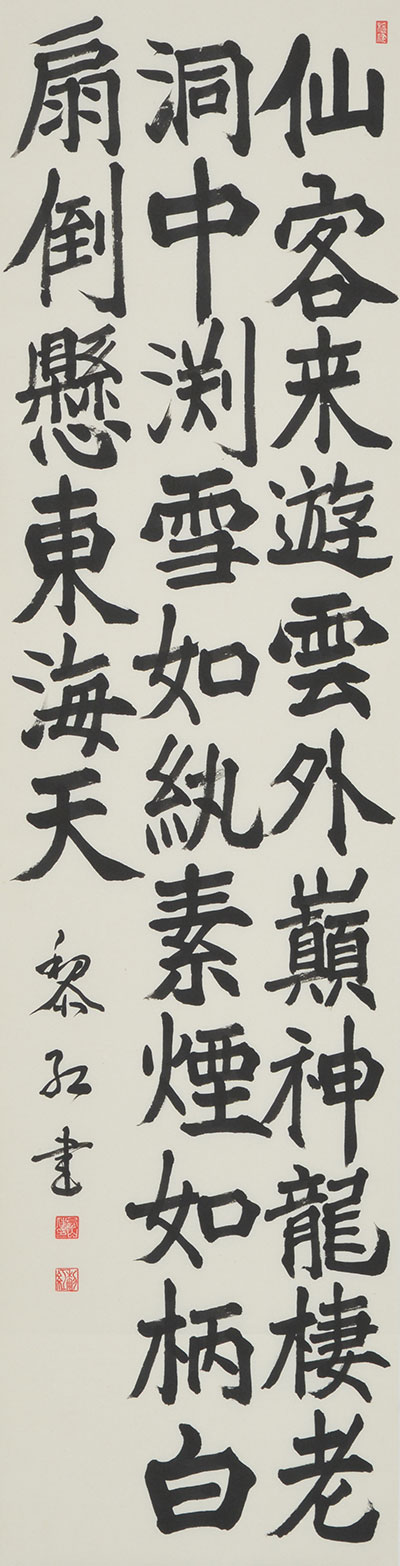 仙客来遊雲外巓神龍棲老
洞中渕雪如紈素煙如柄白
扇倒懸東海天
黎紅書